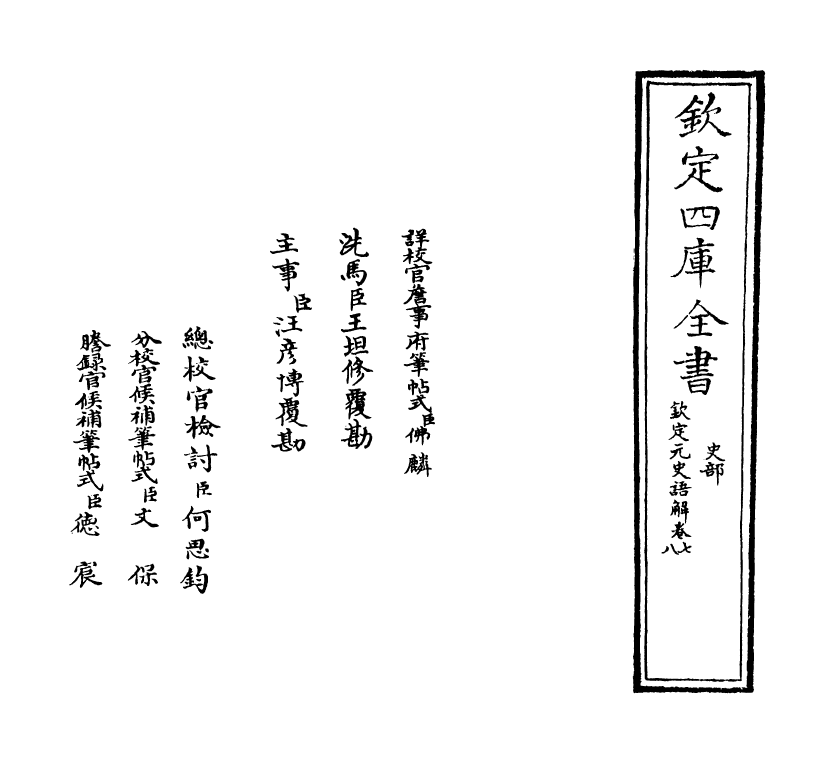 欽定四庫全書
史部
欽定元史語解卷七八
詳校官詹事府筆帖式臣佛麟
洗馬臣王坦修覆勘
主事臣汪彦博覆勘
總校官檢討臣何思鈞
分校官候補筆帖式臣文保
謄録官候補筆帖式臣德宸